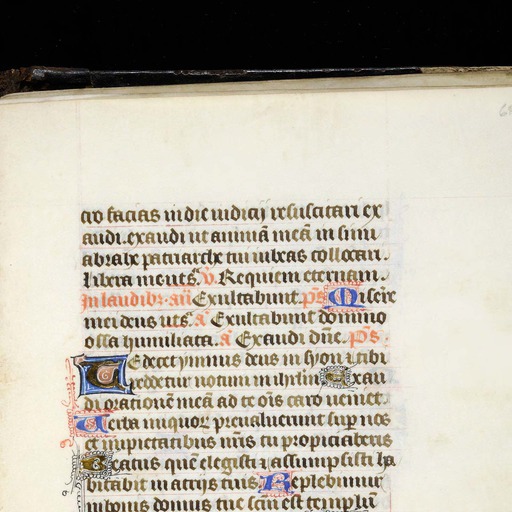 cio facias in die iudicij resuscitari ex
audi. exaudi ut animā meā in sinu
abrahe patriarche tui iubeas collocari.
libera me uts̄. v. Requiem eternam.
In laudibz añ Exultabunt. ps̄ Misere
mei deus uts̄. a Exultabunt domino
ossa humiliata. a Exaudi dñe. ps̄.
Te decet ymnus deus in syon ⁊ tibi
reddetur uotum in ihrlm̄ Exau
di orationē meā ad te oīs caro ueniet.
Uerba iniquor preualuerunt sup̄ nos
et impietatibus nr̄is tu propiciaberis
Beatus quē elegisti ⁊ assumpsisti ha
bitabit in atrijs tuis Replebimur
in bonis domus tue sc̄m est templū